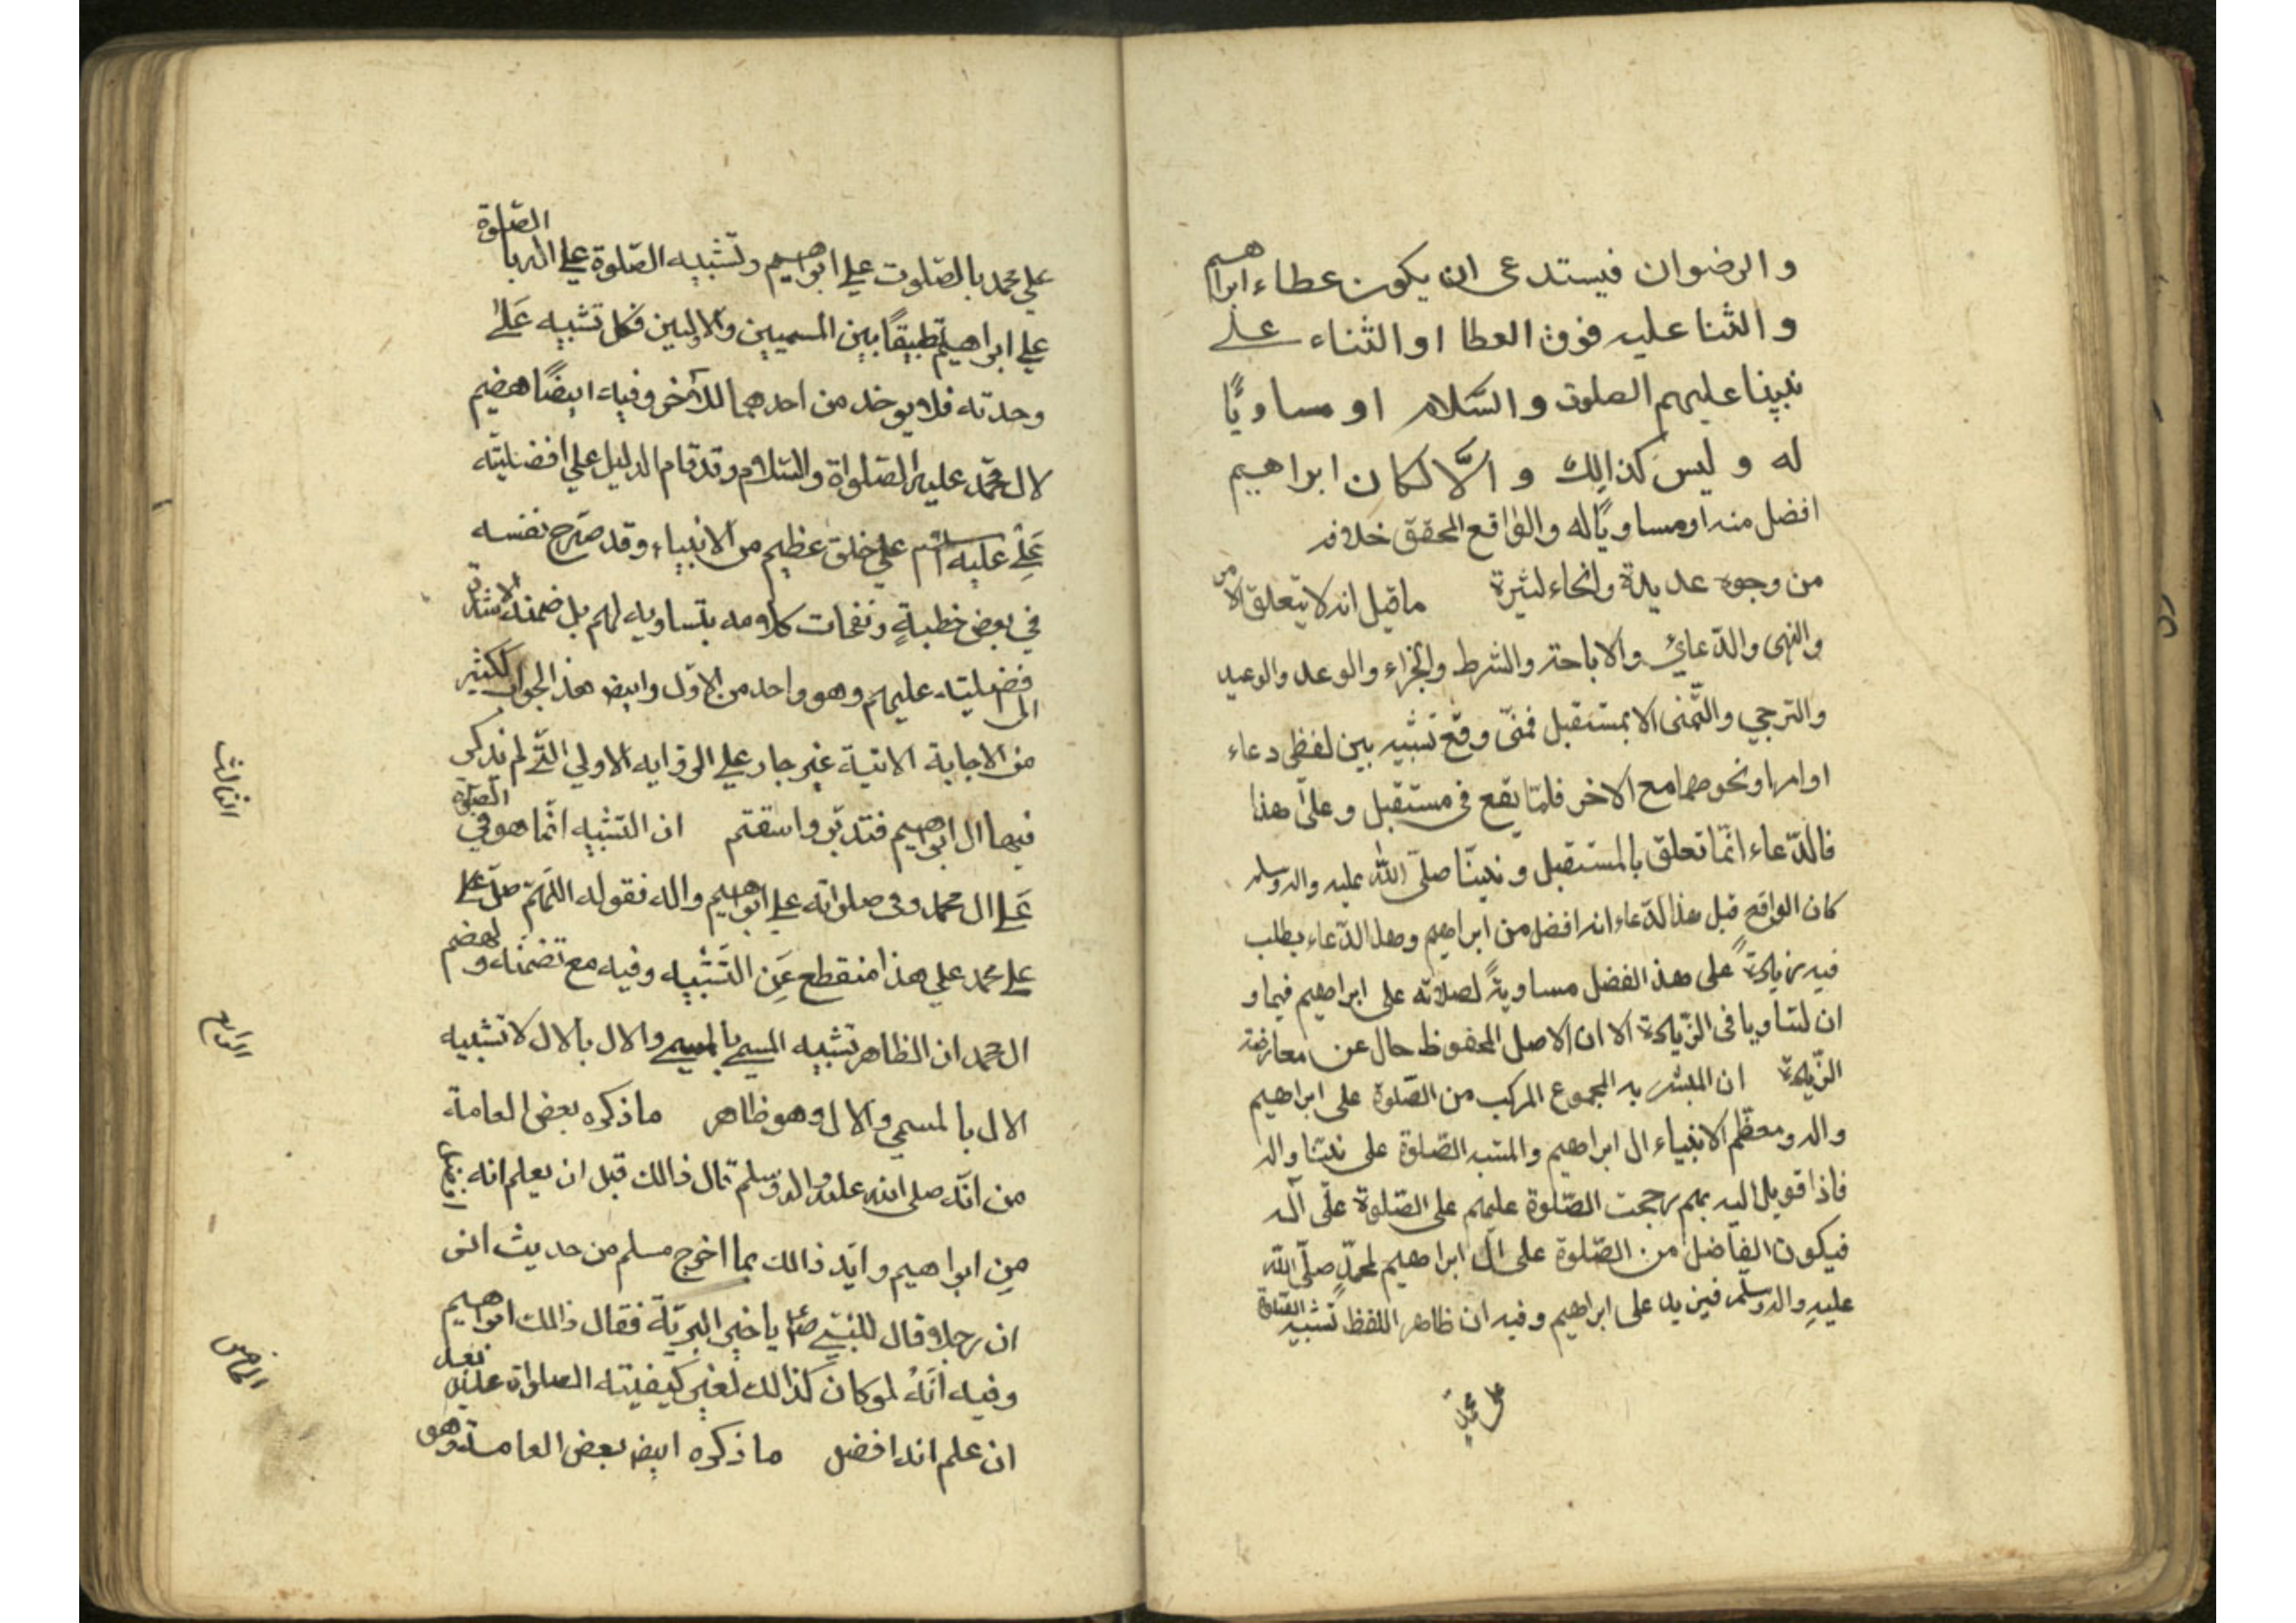 والرضوان فيستدعى ان يكون عطاء ابراهيم
والثنا عليه فوق العطا او الثناء على
نبينا عليهم الصلوت والسّلام او مساويًا
له و ليس كذالك و الّا لكان ابراهيم
افضل منه او مساويًا له والواقع المحقق خلافه
من وجوه عديدة وانحاء لثيرة ماقيل انه لا يتعلق الامر
والنهى والدّعائ والاباحة والشرط والجزاء والوعد والوعيد
والترجي والتّمنى الا بمستقبل فمتى وقع تشبيه بين لفظى دعاء
او امر او نحوهما مع الاخر فلمّا يقع فى مستقبل وعلى هذا
فالدّعاء انّما تعلق بالمستقبل و نبينّا صلّى الله عليه واله وسلم
كان الواقع قبل هذا الدّعاء انه افضل من ابراهيم وهذا الدّعاء يطلب
فيه زيادةً على هذ الفضل مساويةً لصلاته على ابراهيم فيما و
ان لتساويا فى الزّيادة الا ان الاصل المحفوظ حال عن معارضة
الزّيادة ان المبشر به المجموع المركب من الصّلوة على ابراهيم
واله ومعظم الانبياء ال ابراهيم والمشبه الصّلوة على نبيّنا واله
فاذا قوبل اليه بهم رجحت الصّلوة عليهم على الصّلوة على آله
فيكون الفاضل من الصّلوة على ال ابراهيم لمحمّدٍ صلّى الله
عليهِ واله وسلم فيزيد على ابراهيم وفيه ان ظاهر اللفظ تشبيه الصّلوة
على محمّدٍ
على محمد بالصّلوت علي ابراهيم وتشبيه الصّلوة علي اله بالصّلوة
علي ابراهيم تطبيقًا بين المسميين والالين فكل تشبيه عَلى
وحدته فلا يوخذ من احدهما للآخر وفيه ايضًا هضيم
لال محمّد عليه الصّلواة والسّلام وقد قام الدليل علي افضليّته
عَلِي عليه السّلم علي خلق عظيم من الانبياء وقد صرّح نفسه
في بعض خطبةٍ ونفحات كلامه بتساويه لهم بل ضمنه الاشارة
الى فضليته عليهم وهو واحد من الاول وايض هذ الجواب لكثير
من الاجابة الاتية غير جار علي الرواية الاولي الّتي لم يذكر
فيها ال ابراهيم فتدبّر واستقم ان التشبيه انّما هو في الصّلوة
عَلي ال محمد وفى صلواته علي ابراهيم واله فقوله اللّهمّ صلّ علي
علي محمد علي هذا منقطع عَنِ التّشبيه وفيه مع تضمنه لهضم
ال محمد ان الظاهر تشبيه المسمي بالمسمي والال بالال لا تشبيه
الال بالمسمي والال وهو ظاهر ماذكره بعض العامة
من انّه صلى الله عليه واله وسلم قال ذالك قبل ان يعلم انه افضل
من ابراهيم وايّد ذالك بما اخرج مسلم من حديث انس
ان رجلا قال للنبّي صلعم يا خير البريّة فقال ذالك ابراهيم
وفيه انّه لوكان كذالك لغير كيفيته الصلواة عليه بعد
ان علم انه افضل ماذكره ايض بعض العامة وهو
الثالث
الرابع
الخامس